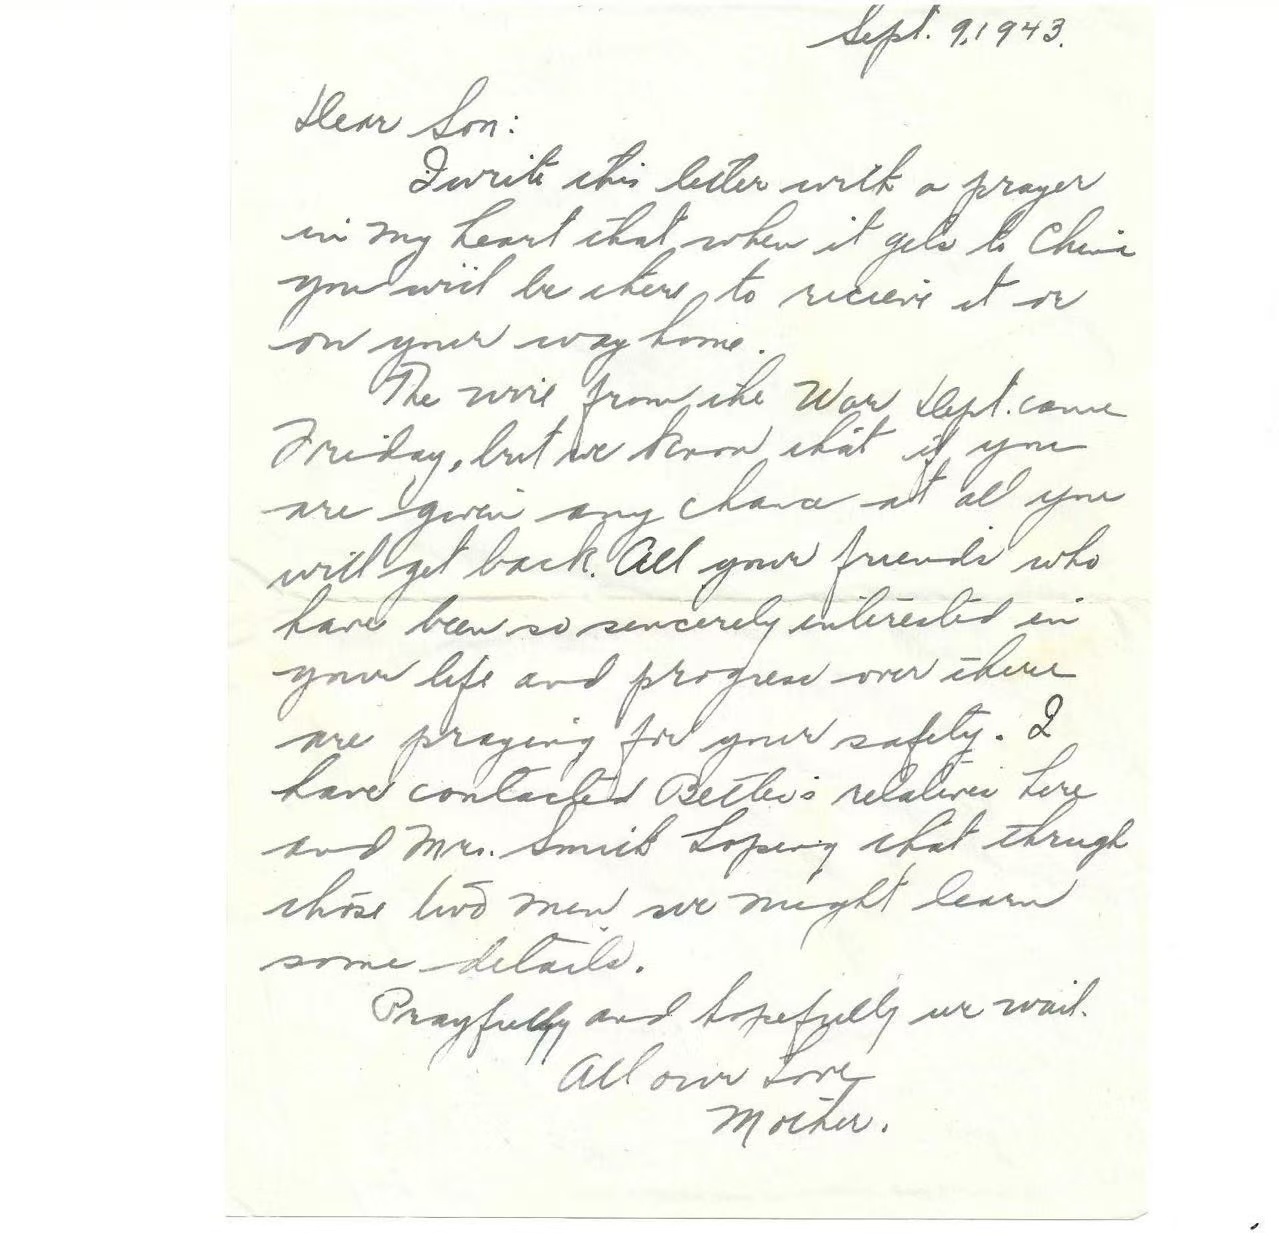 Sept. 9, 1943.
Dear Son:
I write this letter with a prayer
in my heart that when it gets to China
you will be there to recieve it or
on your way home.
The wire from the War Dept. came
Friday, but we know that if you
are given any chance at all you
will get back. All your friends who
have been so sincerely interested in
your life and progress over there
are praying for your safety. I
have contacted relatives here
and Mrs. Smith hoping that through
those two men we might learn
some details.
Prayfully and hopefully we wait.
All our Love
Mother.